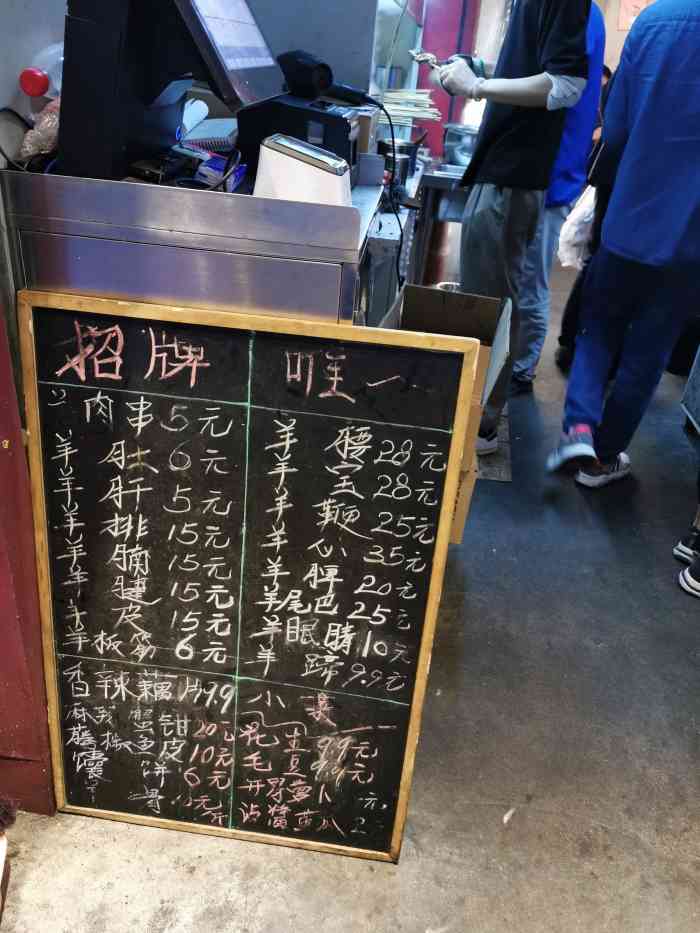 招牌
羊肉串5元
羊肚6元
羊肝5元
羊排15元
羊腩15元
羊腱15元
羊皮15元
羊板筋6元
唯一
羊腰28元
羊宝28元
羊鞭25元
羊心35元
羊脾20元
羊尾巴25元
羊眼睛10元
羊蹄9.9元
香辣藕片9.9
麻辣蟹钳20元
鱼皮10元
饼6元
小
花生9.9元
毛豆9.9元
开胃萝卜元
沾酱黄瓜